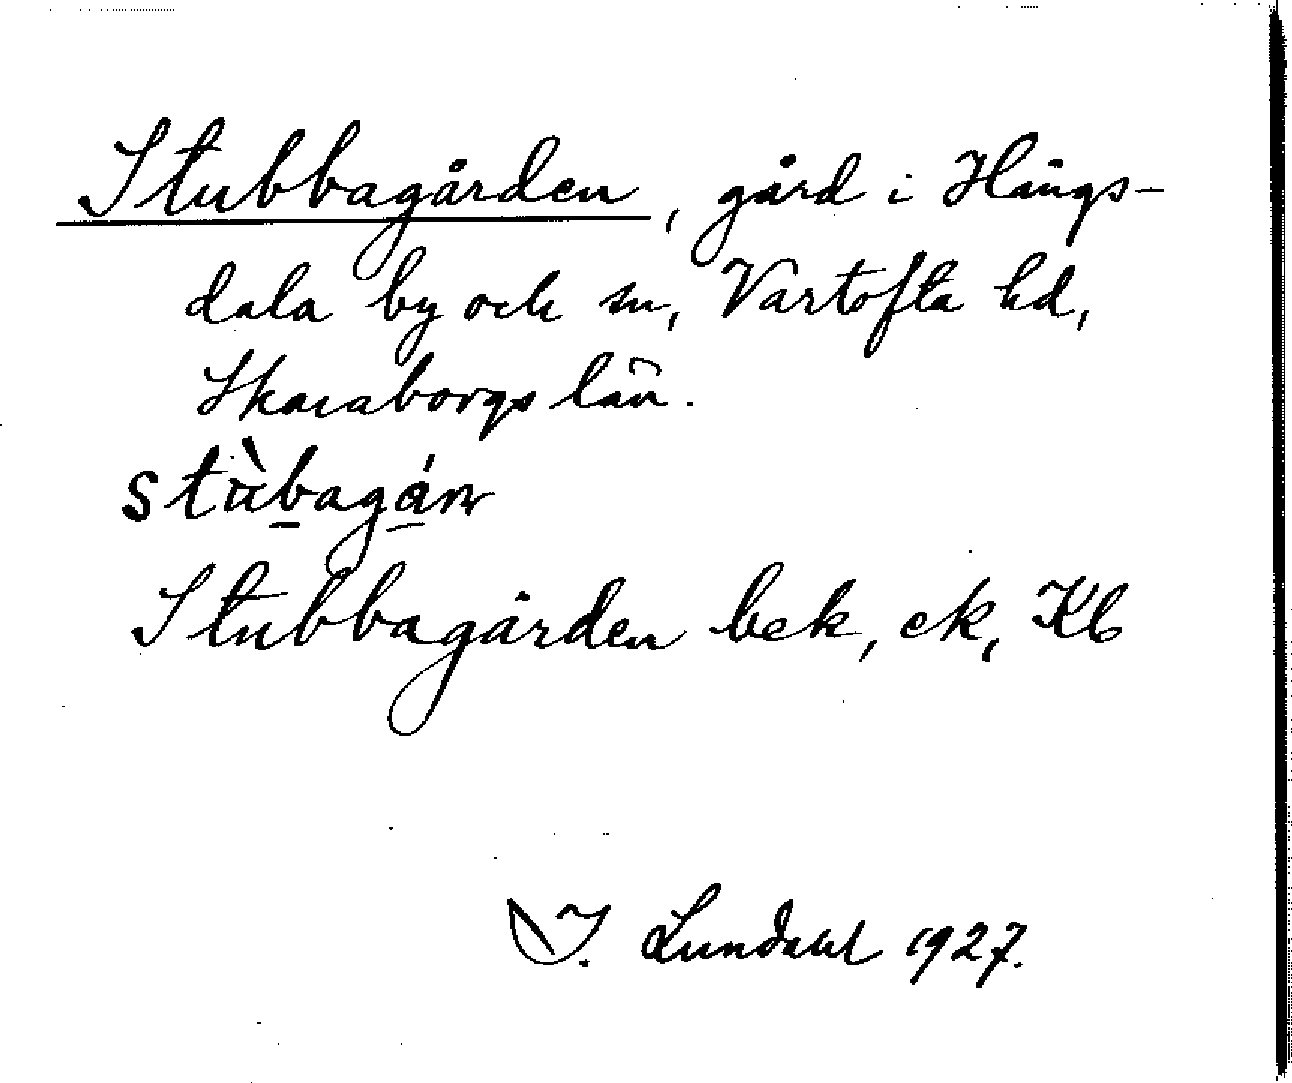 Stubbagården, gård i Hångs-
dala by och sn, Vartofta hd,
Skaraborgs län.
stùbagán
Stubbagården bek, ek, Kb
I. Lundahl 1927.